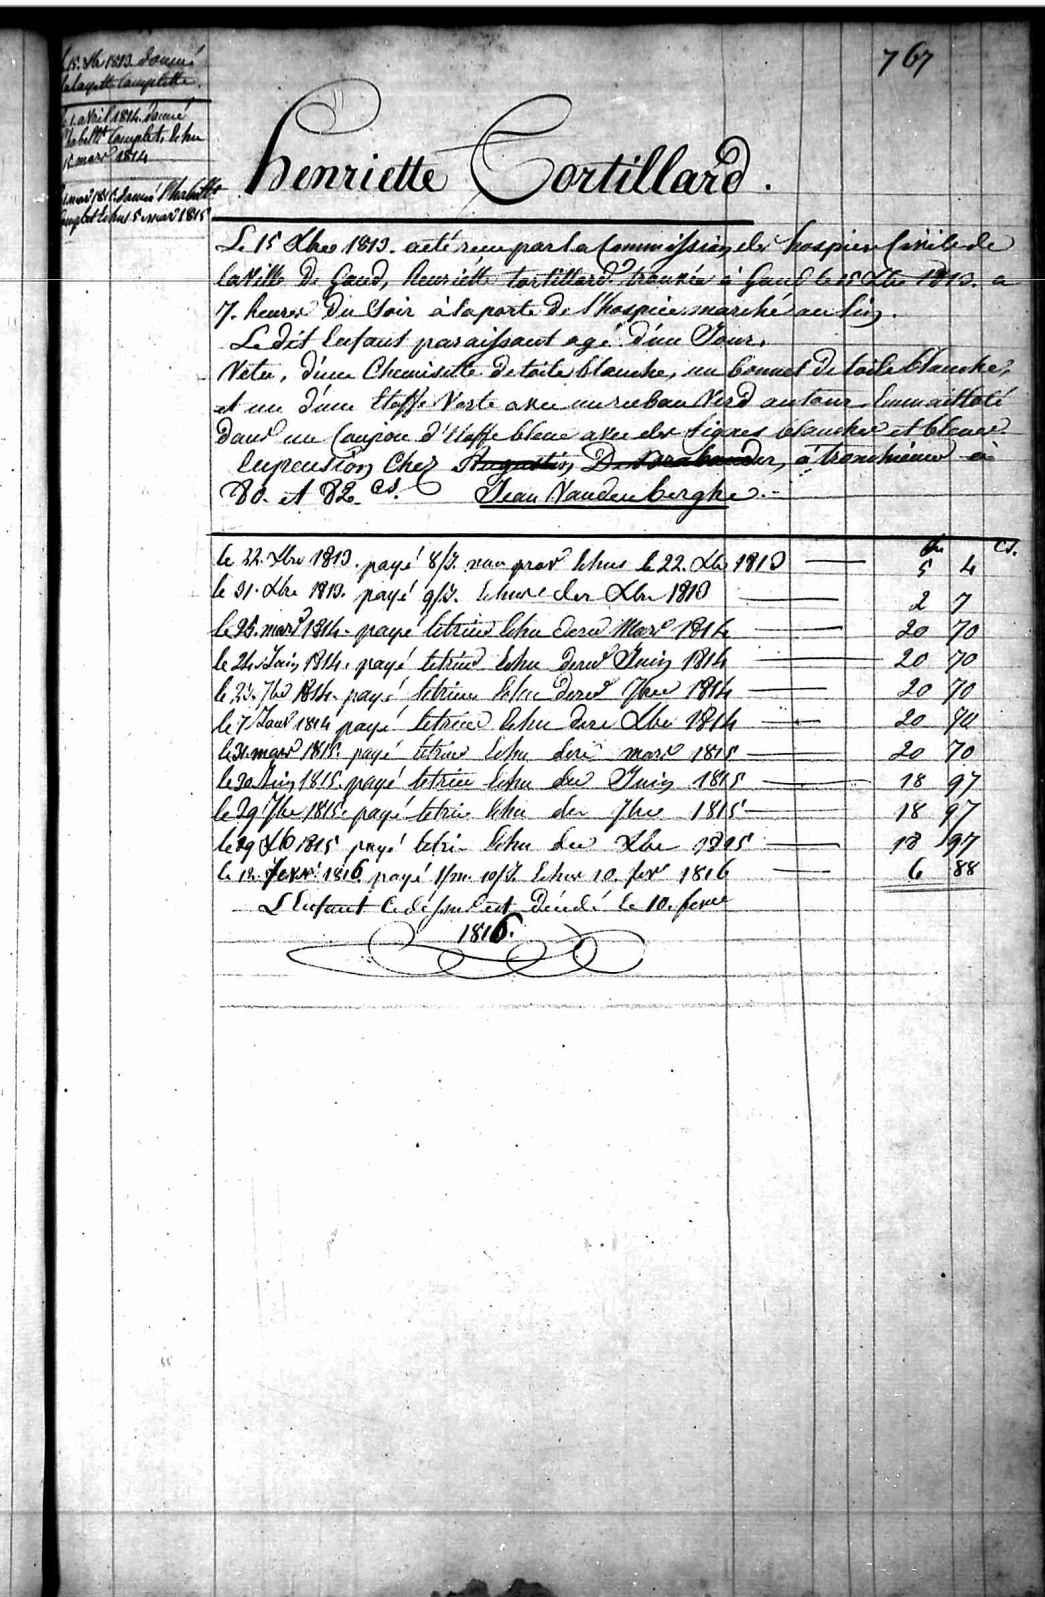 767
Le 15. Xbre 1813 donné
la layette Complette.
le 1. avril 1814. donné
l'habillt Complet, Echu
15 mars 1814
mars 1815 donné l'habillt
Complet Echu 15 mars 1815
Henriette Tortillard.
Le 15 Xbre 1813. a eté reçu par la Commission des hospices Civils de
la Ville de Gand, henriette tortillard trouvée à Gand le 15 Xbre 1813. a
7. heures du Soir à la porte de l'hospice marché au lin.
Le dit Enfant paraissant agé d'un Jour.
Vetu, d'une Chemisette de toile blanche, un bonnet de toile blanche,
et un d'une Etoffe Verte avec un ruban Verd autour Emmailloté
dans un Coupon d'Etoffe bleue avec des lignes blanches et bleues
En pension Chez Augustin De Brabander, à tronchiennes à
80. et 82 cs. Jean Vandenberghe.
fr. cs.
le 22. Xbre 1813. payé 8/J. Echus le 22. Xbre 1813 5 4
le 31. Xbre 1813. payé 9/J. Echus der Xbre 1813 2 7
le 25. mars 1814. payé le trim Echu dern Mars 1814 20 70
le 24. Juin 1814. payé le trim Echu dern Juin 1814 20 70
le 23. 7bre 1814. payé le trim Echu dern 7bre 1814 20 70
le 7 Janv 1814 payé le trim Echu dern Xbre 1814 20 70
le 31. mars 1815. payé le trim Echu dern mars 1815 20 70
le 30 Juin 1815. payé le trim Echu der Juin 1815 18 97
le 29 7bre 1815. payé le trim Echu der 7bre 1815 18 97
le 29 Xb 1815 payé le tri Echu der Xbre 1815 18 97
le 12. fevr. 1816. payé 1/m. 10/J. Echus 10. fevr 1816 6 88
L'Enfant Ci dessus est Décédé le 10. fevr
1816.